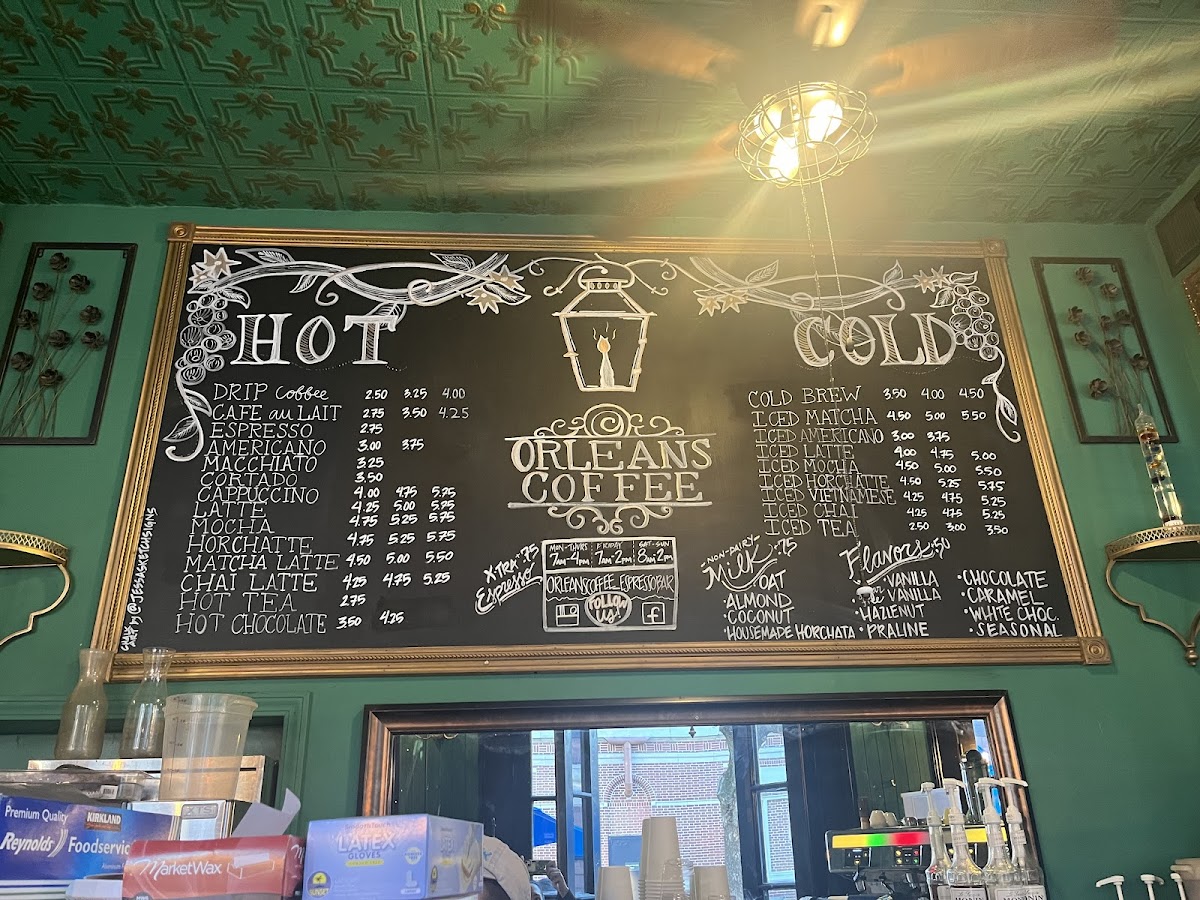 HOT
DRIP Coffee 2.50 3.25 4.00
CAFE au LAIT 2.75 3.50 4.25
ESPRESSO 2.75
AMERICANO 3.00 3.75
MACCHIATO 3.25
CORTADO 3.50
CAPPUCCINO 4.00 4.75 5.75
LATTE 4.25 5.00 5.75
MOCHA 4.75 5.25 5.75
HORCHATTE 4.75 5.25 5.75
MATCHA LATTE 4.50 5.00 5.50
CHAI LATTE 4.25 4.75 5.25
HOT TEA 2.75
HOT CHOCOLATE 3.50 4.25
by @JESSASKETCHSIGNS
ORLEANS
COFFEE
XTRA .75
Espresso
MON-THURS FRIDAY SAT-SUN
7am-4pm 7am-2pm 8am-2pm
ORLEANSCOFFEE_ESPRESSOBAR
follow
us!
f
COLD
COLD BREW 3.50 4.00 4.50
ICED MATCHA 4.50 5.00 5.50
ICED AMERICANO 3.00 3.75
ICED LATTE 4.00 4.75 5.00
ICED MOCHA 4.50 5.00 5.50
ICED HORCHATTE 4.50 5.25 5.75
ICED VIETNAMESE 4.25 4.75 5.25
ICED CHAI 4.25 4.75 5.25
ICED TEA 2.50 3.00 3.50
NON-DAIRY .75
Milk
OAT
•ALMOND
•COCONUT
•HOUSEMADE HORCHATA
Flavors .50
•VANILLA
VANILLA
•HAZLENUT
•PRALINE
•CHOCOLATE
•CARAMEL
•WHITE CHOC.
•SEASONAL
Premium Quality
KIRKLAND
Reynolds Foodservic
MarketWax
LATEX
GLOVES
L